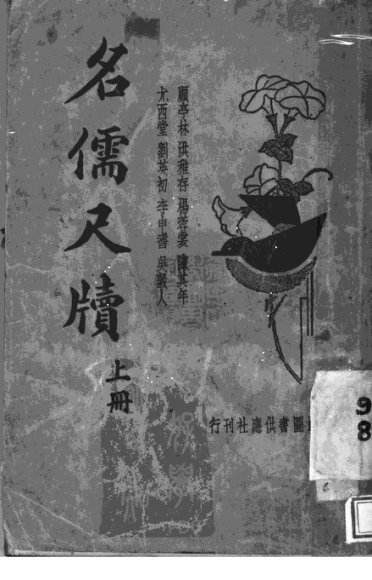 名儒尺牘
上冊
顧亭林 洪稚存 楊蓉裳 陳其年
尤西堂 劉英初 李申耆 吳穀人
圖書供應社刊行
9
8